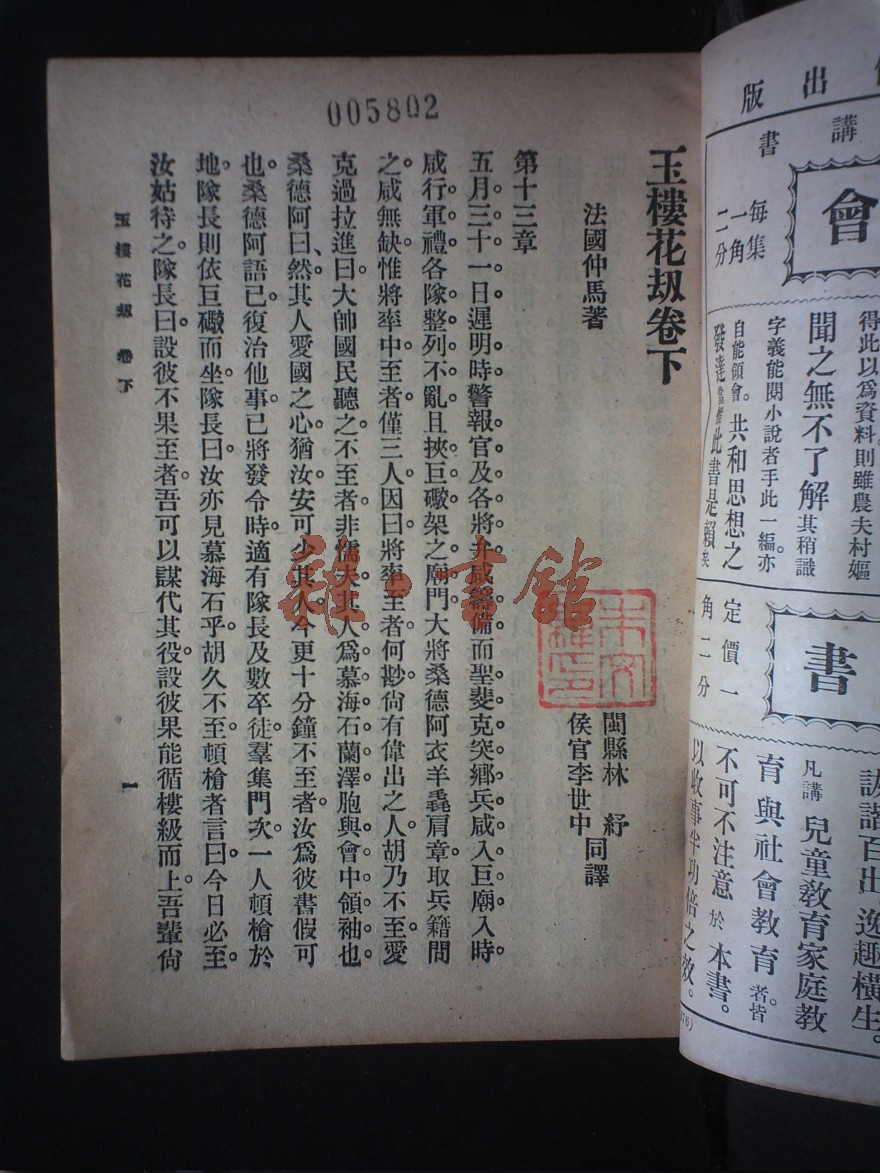 005802
玉樓花刼卷下
法國仲馬著
閩縣林 紓
侯官李世中
同譯
第十三章
五月三十一日遲明時。警報官及各將弁咸籌備。而聖斐克突鄉兵咸入巨廟。入時。
咸行軍禮。各隊整列不亂。且挾巨礮架之廟門。大將桑德阿衣羊毳肩章。取兵籍閱
之。咸無缺。惟將率中至者僅三人。因曰。將率至者何尠。尚有偉出之人。胡乃不至。愛
克過拉進曰。大帥國民聽之。不至者非懦夫。其人爲慕海石蘭澤胞。與會中領袖也。
桑德阿曰、然。其人愛國之心。猶汝。安可少其人。今更十分鐘不至者。汝爲彼書假可
也。桑德阿語已。復治他事。已將發令時。適有隊長及數卒。徒羣集門次。一人頓槍於
地。隊長則依巨礮而坐。隊長曰。汝亦見慕海石乎。胡久不至。頓槍者言曰。今日必至。
汝姑待之。隊長曰。設彼不果至者。吾可以謀代其役。設彼果能循樓級而上。吾輩尙
玉樓花刼 卷下
一
雜·書館
出版
講書
會
每集
一角
二分
得此以爲資料。則雖農夫村嫗
聞之無不了解其稍識
字義能閱小說者手此一編。亦
自能領會。共和思想之
發達 此書是賴矣
書
定價一
角二分
詼諧百出。逸趣橫生。
凡講兒童教育家庭教
育與社會教育者。皆
不可不注意於本書。
以收事半功倍之效。